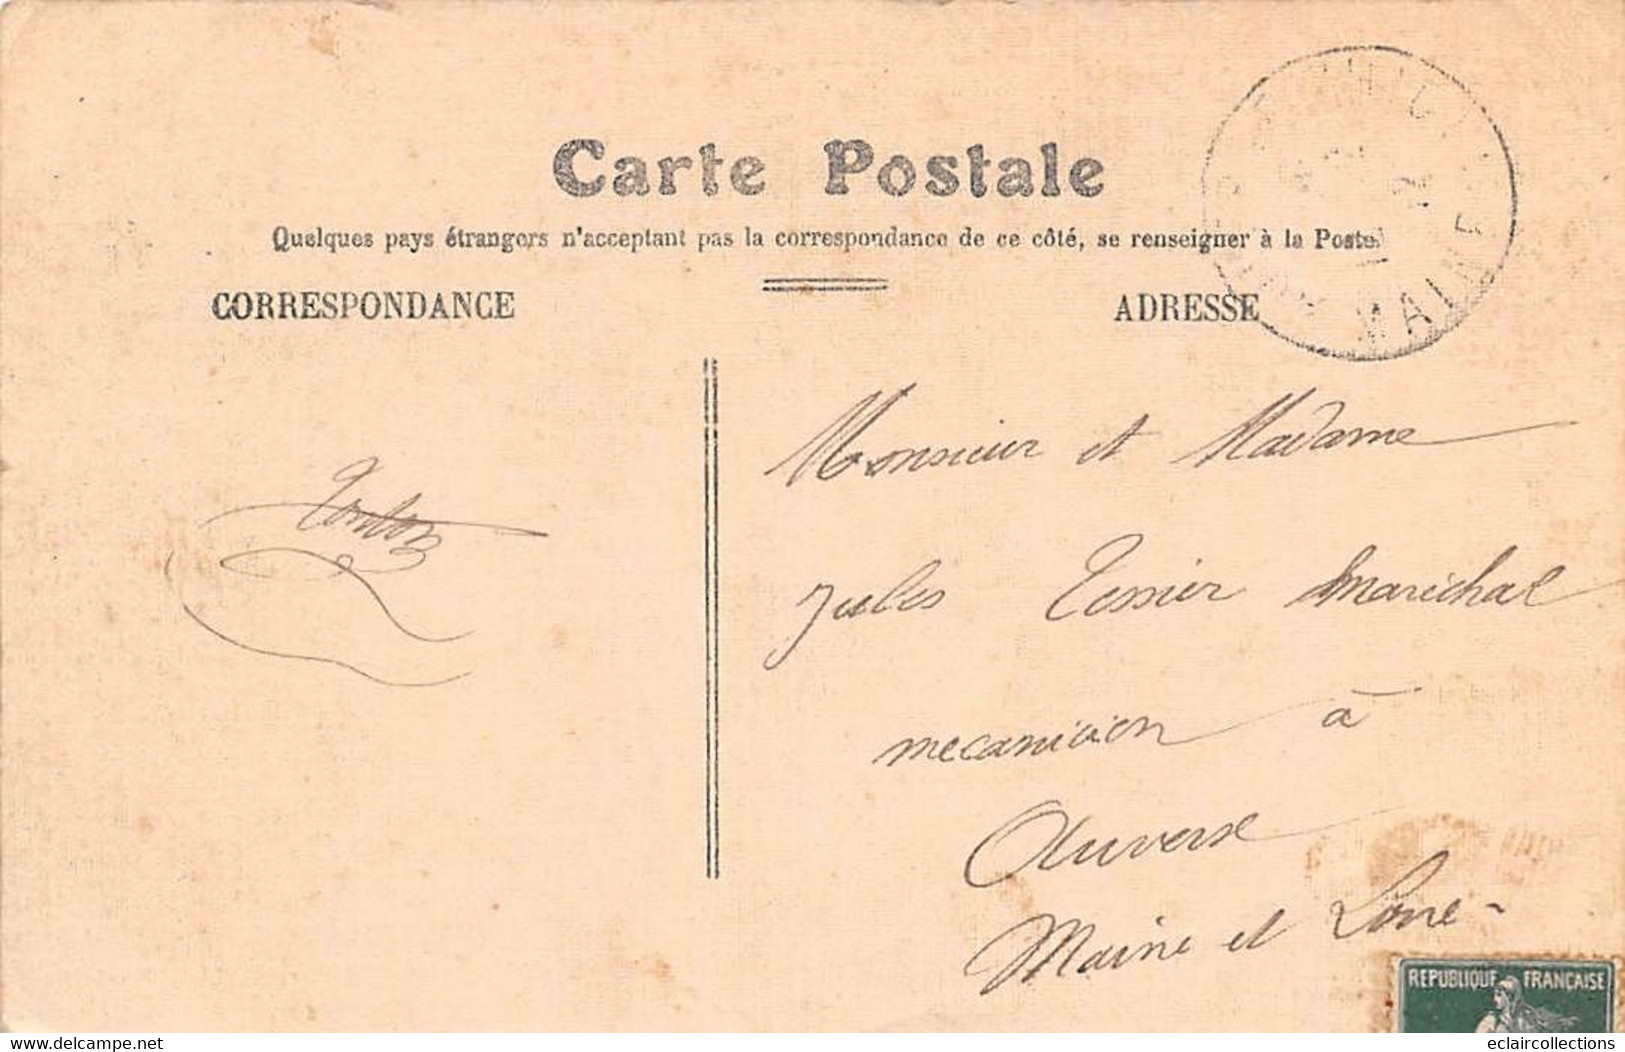 Carte Postale
Quelques pays étrangers n'acceptant pas la correspondance de ce côté, se renseigner à la Poste.
CORRESPONDANCE
ADRESSE
MAINE
Tonton
Monsieur et Madame
Jules Tessier Maréchal
mecanicien à
Auverse
Maine et Loire -
REPUBLIQUE FRANÇAISE
www.delcampe.net
eclaircollections